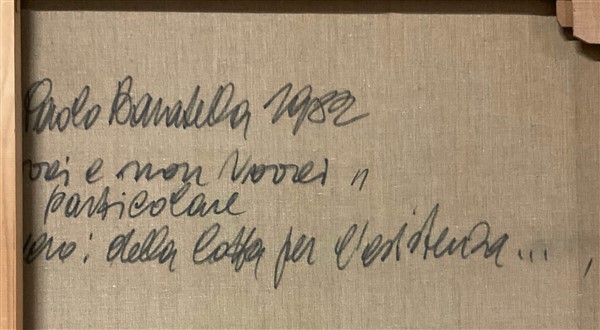 Paolo Baratella 1982
rrei e non vorrei "
particolare
vero: della lotta per l'esistenza...